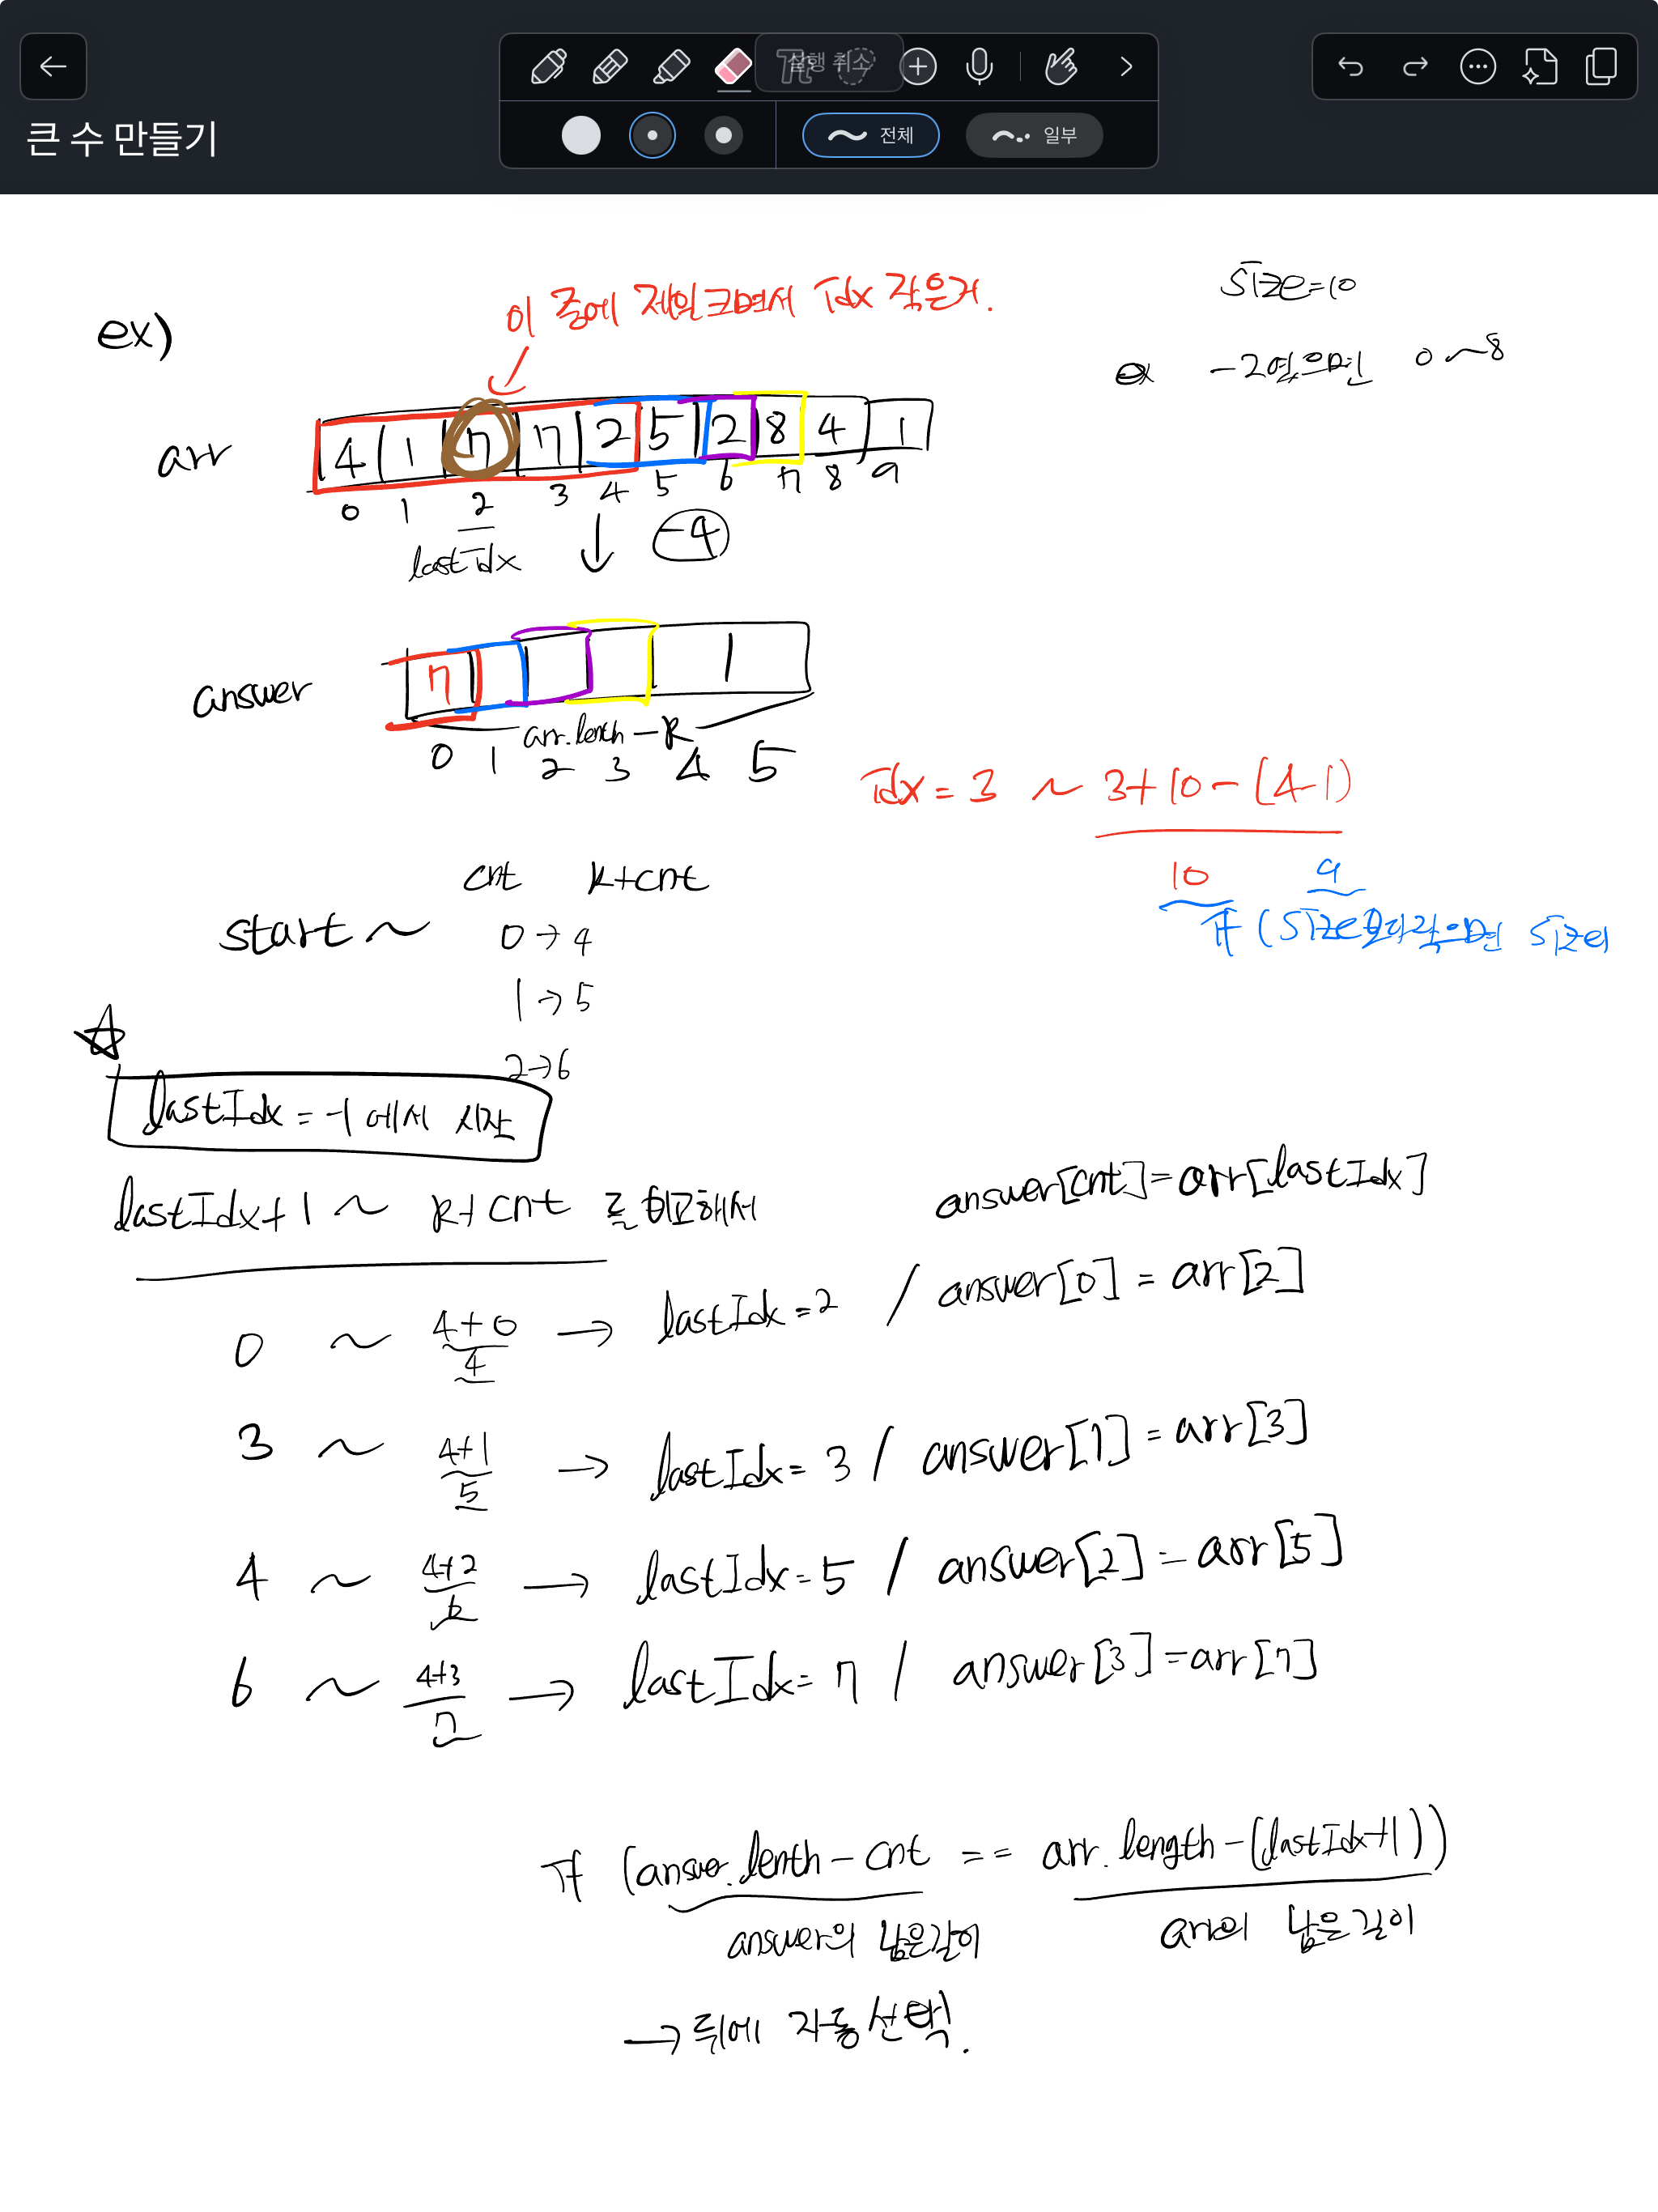 실행 취소
큰 수 만들기
전체
일부
size=10
ex -2였으면 0~8
이 중에 제일 크면서 Idx 작은거.
ex)
arr 4 1 7 7 2 5 2 8 4 1
0 1 2 3 4 5 6 7 8 9
lastIdx ↓ -4
answer 7 1
arr.lenth - k
0 1 2 3 4 5
Idx = 3 ~ 3+10-(4-1)
10 9
If (size보다작으면 size
cnt k+cnt
start ~ 0→4
1→5
2→6
☆
lastIdx = -1에서 시작
lastIdx+1 ~ k+cnt 를 비교해서
answer[cnt]=arr[lastIdx]
0 ~ 4+0 → lastIdx=2 / answer[0] = arr[2]
4
3 ~ 4+1 → lastIdx= 3 / answer[1] = arr[3]
5
4 ~ 4+2 → lastIdx=5 / answer[2] = arr[5]
6
6 ~ 4+3 → lastIdx= 7 / answer[3]=arr[7]
7
If (answer.lenth - cnt == arr.length-(lastIdx+1))
answer의 남은길이 arr의 남은길이
→ 뒤에 자동선택.